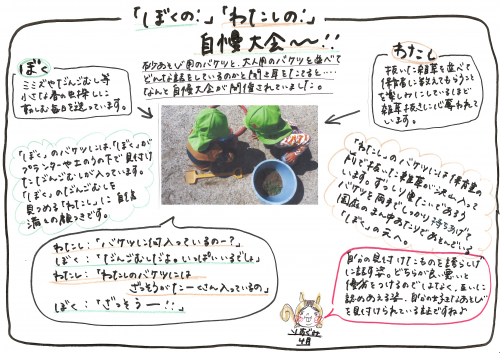 「ぼくの！」「わたしの！」
自慢大会〜!!
砂あそび用のバケツと、大人用のバケツを並べて
どんな話をしているのかと聞き耳をたてると…
なんと自慢大会が開催されていました。
ぼく
ミミズやだんごむし等
小さな春の虫探しに
忙しい毎日を送っています。
わたし
抜いた雑草を並べて
保育者に教えてもらうこと
を楽しみにしているほど
雑草抜きに心奪われて
います。
「ぼく」のバケツには「ぼく」が
プランターや土のうの下で見付け
ただんごむしが入っています。
「ぼく」の「だんごむしを
見つめる「わたし」に自信
満々の顔つきです。
「わたし」のバケツには保育室の
下で抜いた雑草が沢山入って
います。ずっしり重たいであろう
バケツを両手でしっかり持ちあげて
園庭のまん中あたりであそんでいる
「ぼく」の元へ。
わたし：「バケツに何入っているのー？」
ぼく：「だんごむしだよ。いっぱいいるでしょ」
わたし：「わたしのバケツには
ざっそうがたーくさん入っているの」
ぼく：「ざっそうー!!」
自分の見付けたものを誇らしげ
に話す姿。どちらが良い悪いと
優劣をつけるのではなく、互いに
認めあえる姿。自分の好きなあそび
を見付けられている証ですね♪
4月